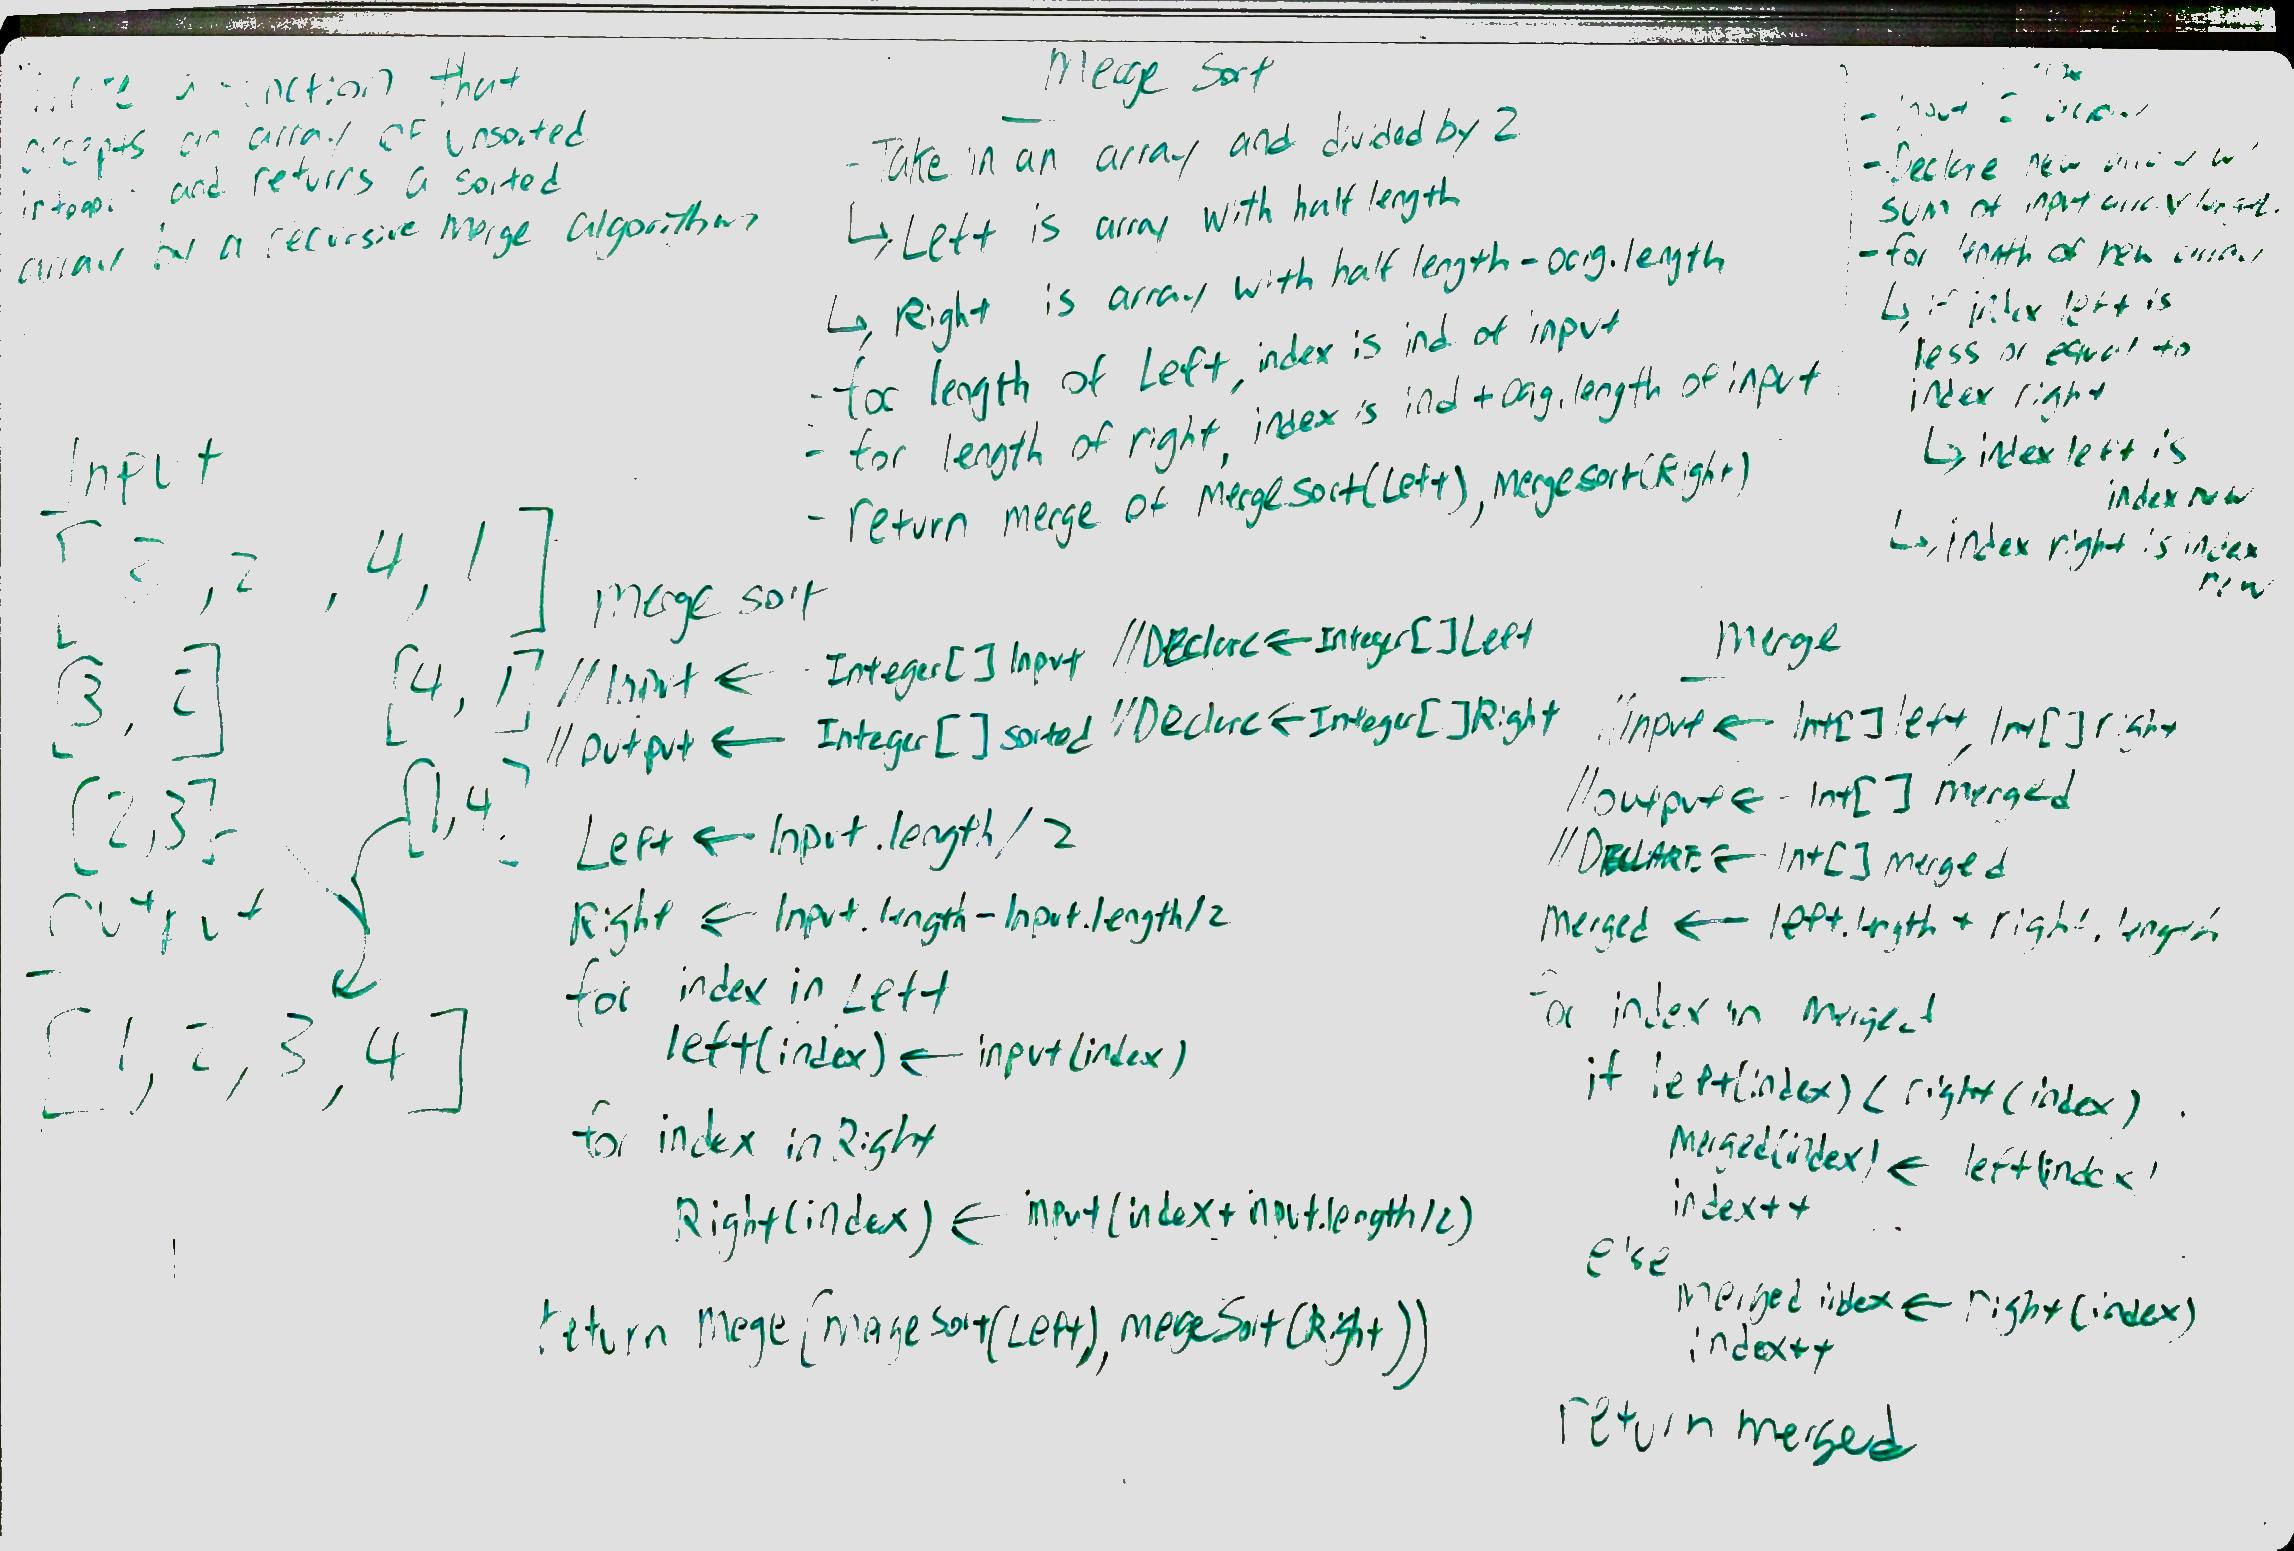 function that
accepts an array of unsorted
and returns a sorted
array by a recursive merge algorithm
Merge Sort
- Take in an array and divided by 2
↳ Left is array with half length
↳ Right is array with half length - orig.length
- for length of Left, index is ind of input
- for length of right, index is ind + orig.length of input
- return merge of MergeSort(Left), MergeSort(Right)
- input 2 array
- Declare new array w
sum of input array length.
- for length of new array
↳ if index left is
less or equal to
index right
↳ index left is
index new
↳ index right is index
new
Input
[3, 2, 4, 1]
[3, 2] [4, 1]
[2,3] [1,4]
output
[1, 2, 3, 4]
Merge sort
//Input ← Integer[] Input //Declare ← Integer[] Left
//output ← Integer[] sorted //Declare ← Integer[] Right
Left ← Input.length/2
Right ← Input.length - Input.length/2
for index in Left
left(index) ← input(index)
for index in Right
Right(index) ← input(index + input.length/2)
return Mege(mergeSort(Left), mergeSort(Right))
Merge
//input ← Int[] left, Int[] right
//output ← Int[] merged
//DECLARE ← Int[] merged
Merged ← left.length + right.length
for index in merged
if left(index) < right(index)
Merged(index) ← left(index)
index++
else
merged index ← right(index)
index++
return merged